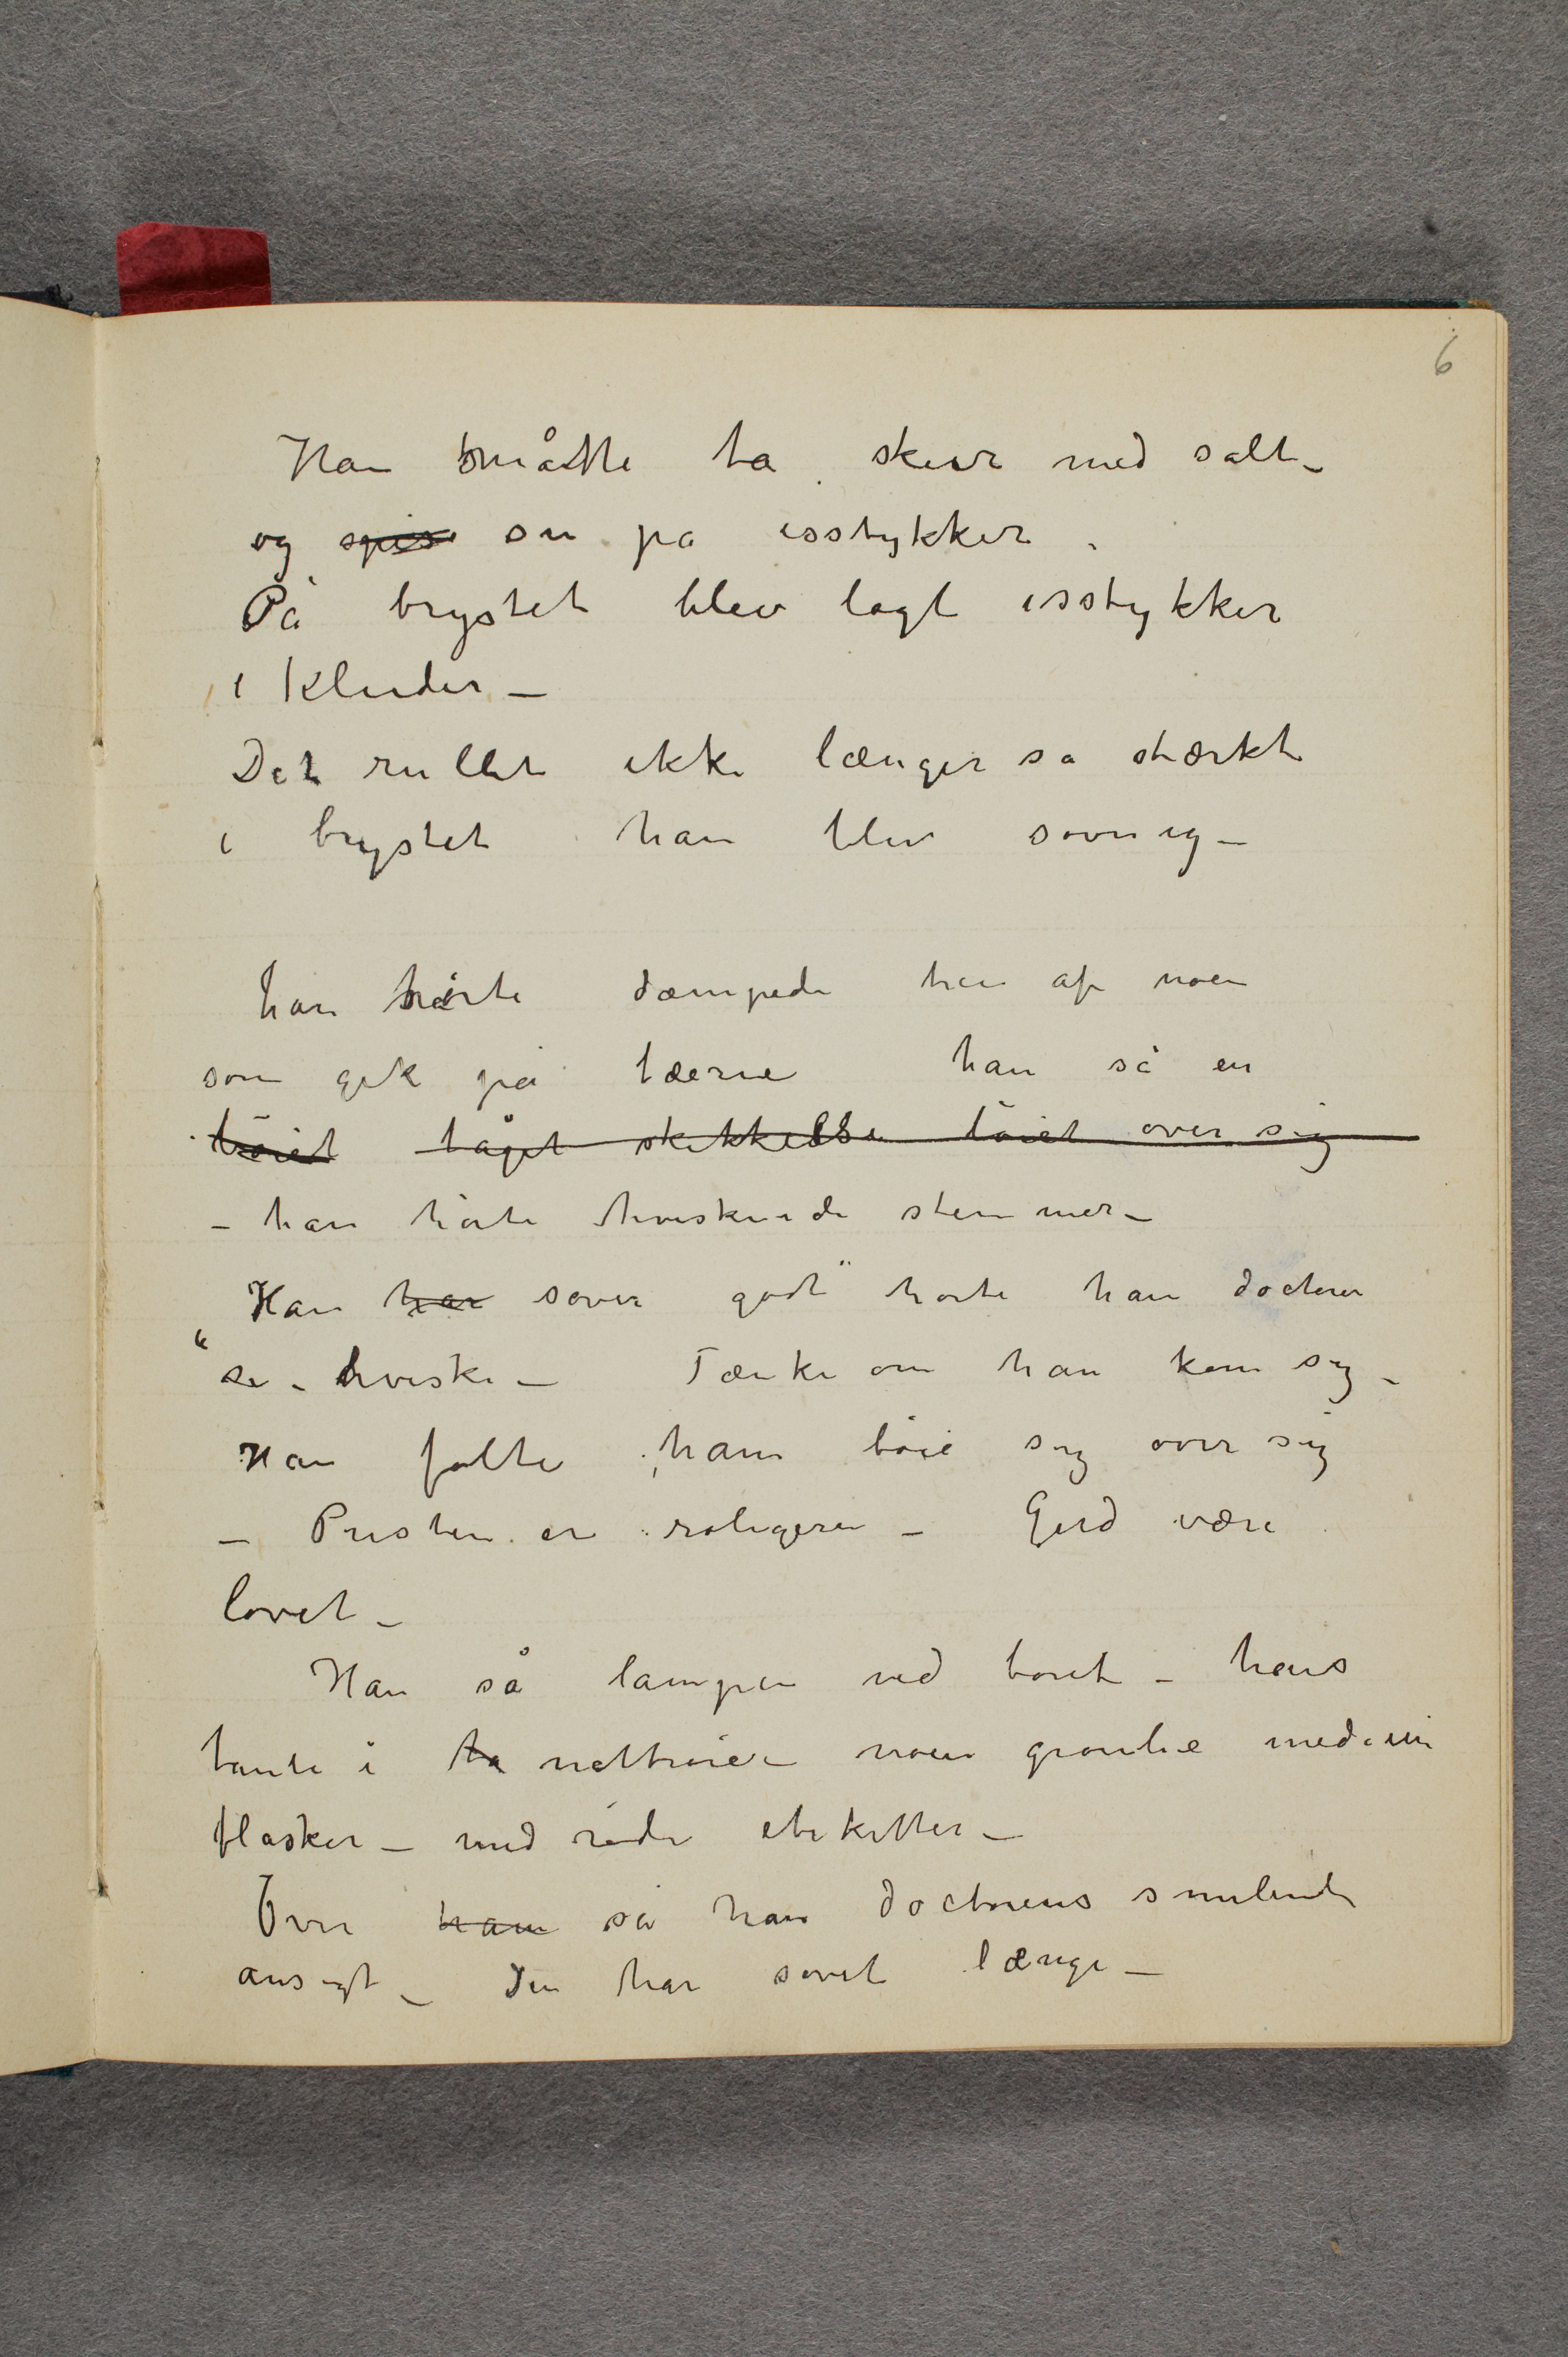 6
Han måtte ta skeer med salt –
og spise su på isstykker.
På brystet blev lagt isstykker
i Kluder –
Det rullet ikke længer så stærkt
i brystet han blev søvnig –
han hørte dæmpede trin af noen
som gik på tæerne han så en
bøiet tåget skikkelse bøiet over sig
– han hørte hviskende stemmer –
Han har sover godt" hørte han doctoren
"se – hviske – Tænke om han kom sig –
Han følte ham bøie sig over sig
– Pusten er roligere – Gud være
lovet –
Han så lampen ved boret – hans
tante i ta nattrøie – noen grønlie medecin
flasker – med røde etiketter –
Over ham så han doctorens smilende
ansigt – Du har sovet længe –